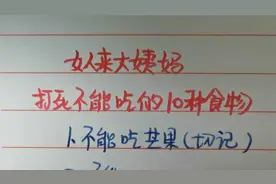 女人来大姨妈
打死不能吃的10种食物
1.不能吃芒果(切记)